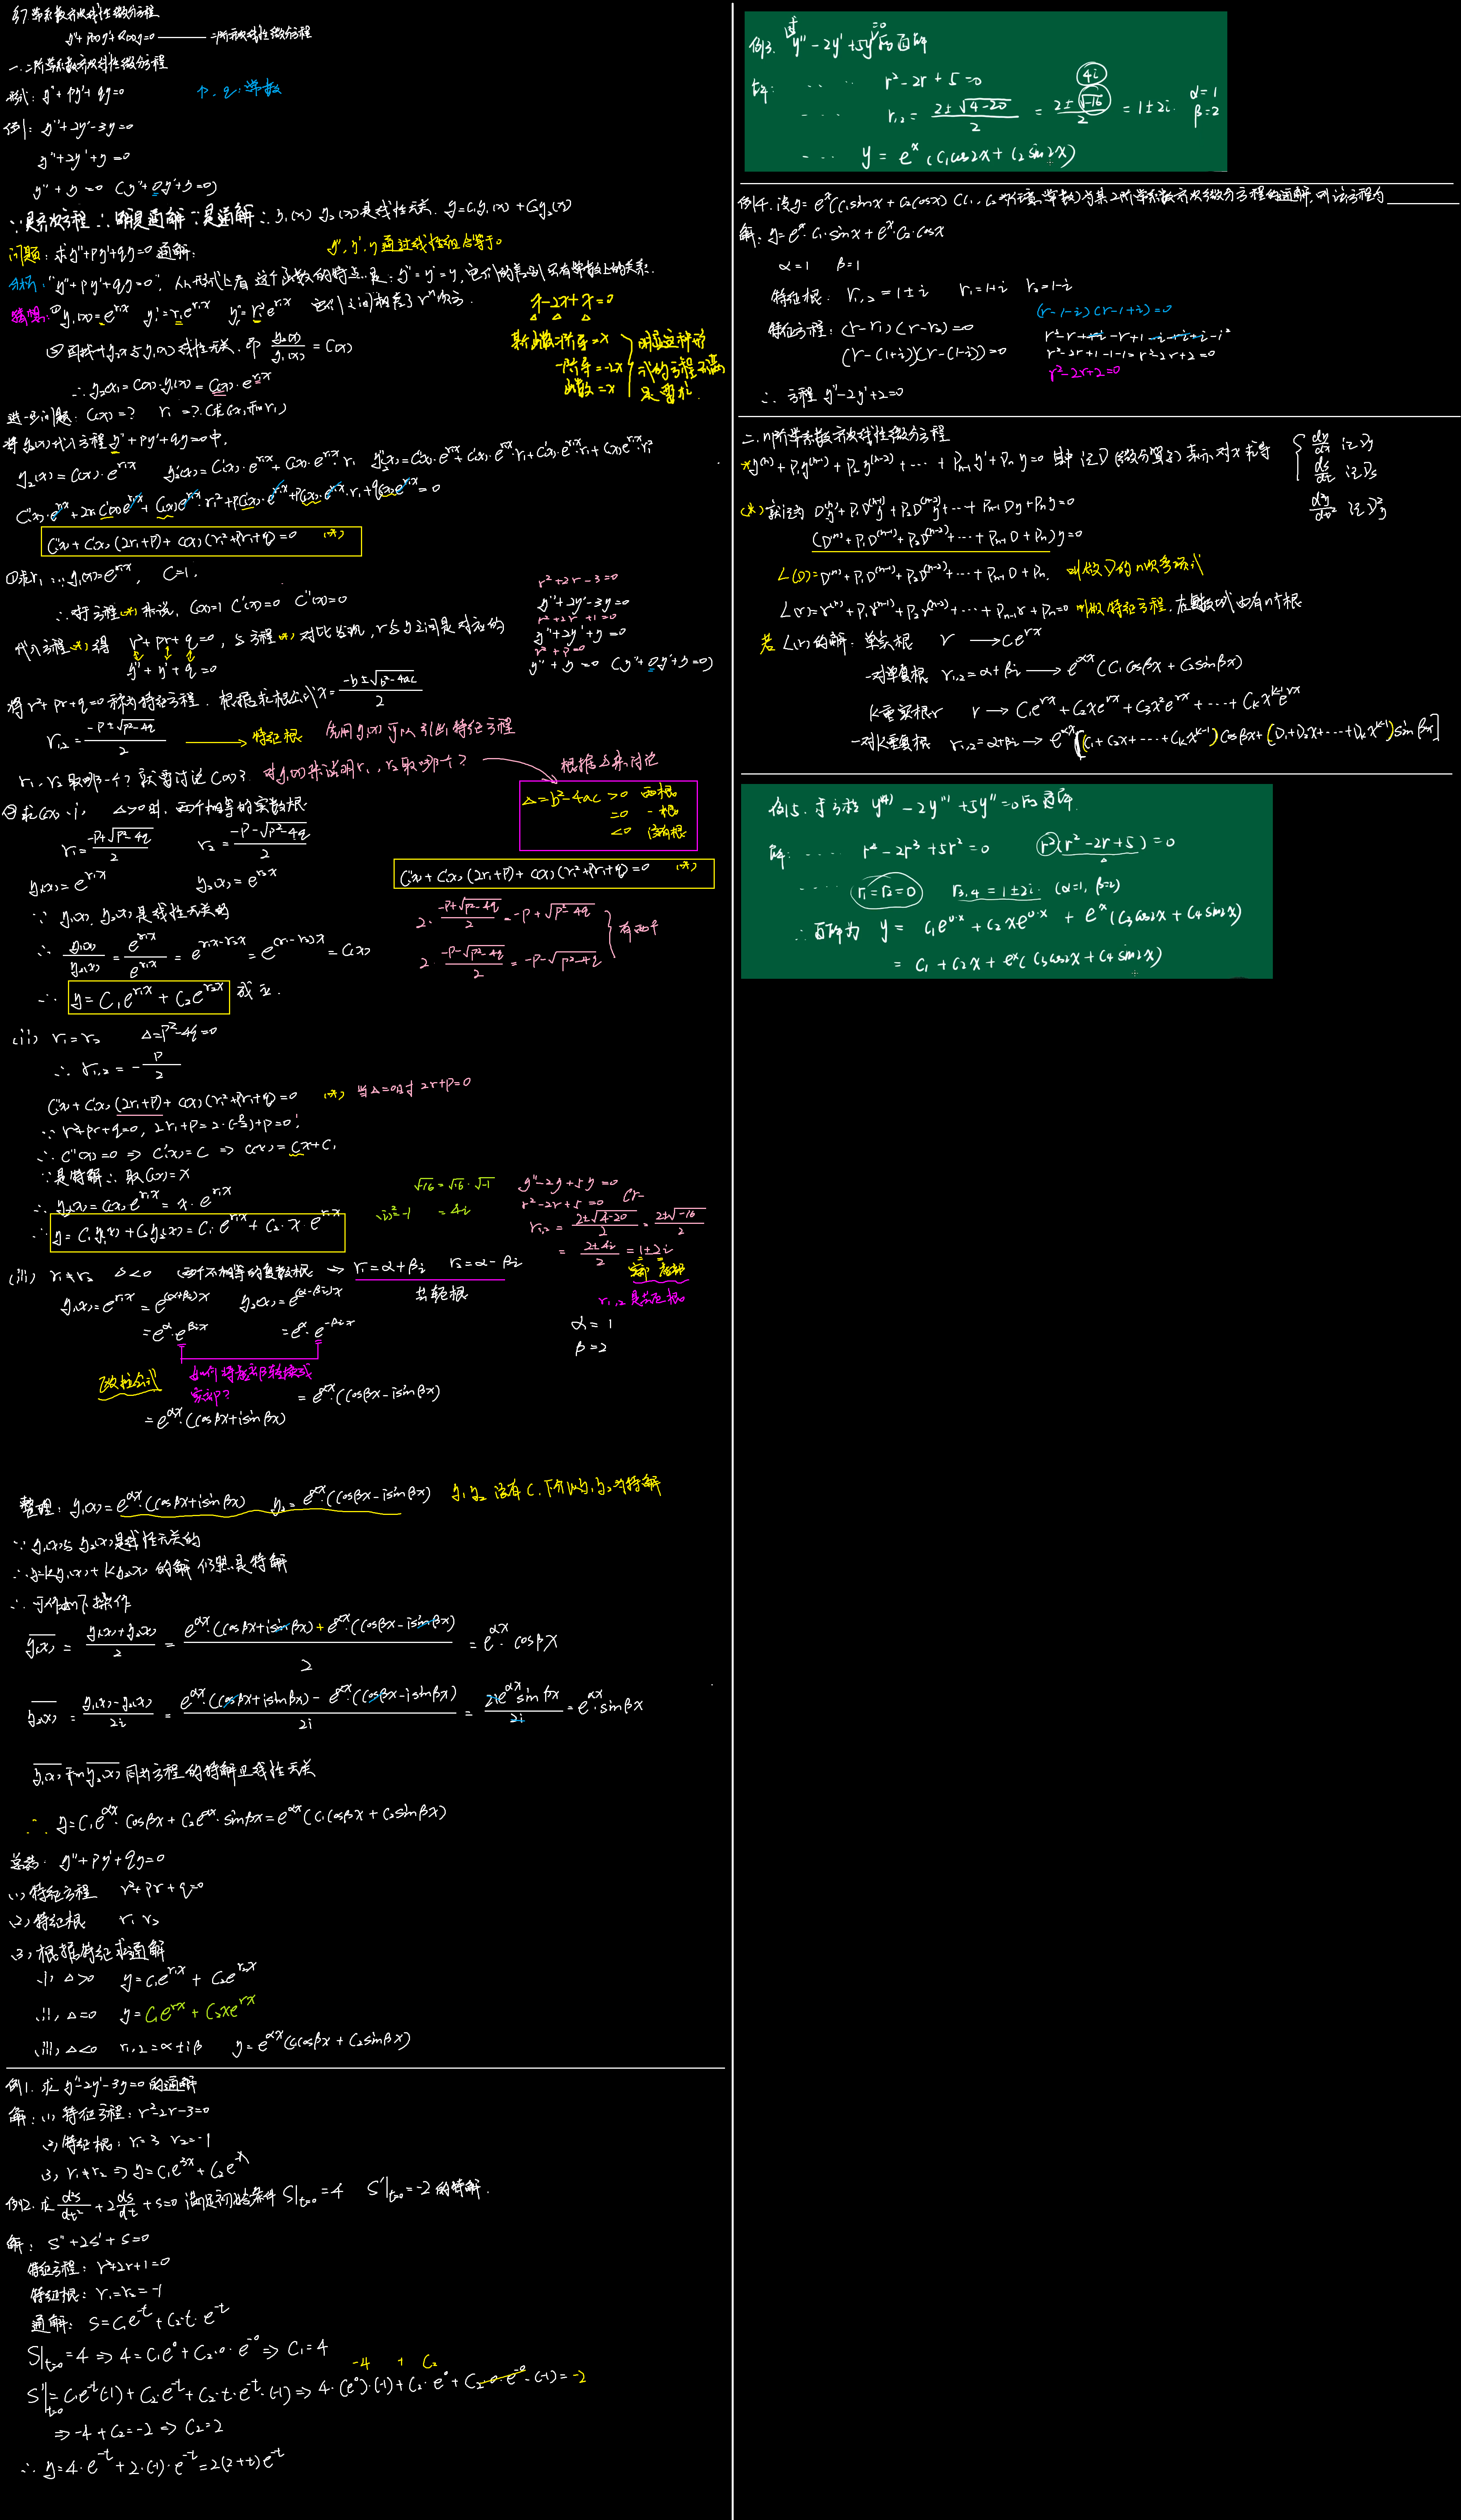 §7 常系数齐次线性微分方程
y''+p(x)y'+Q(x)y=0 —— 二阶齐次线性微分方程
一. 二阶常系数齐次线性微分方程
形式: y''+py'+qy=0 p、q: 常数
例1: y''+2y'-3y=0
y''+2y'+y=0
y''+y=0 (y''+0y'+y=0)
∵是齐次方程 ∴ 明是通解 ∵是通解 ∴ y₁(x) y₂(x)是线性无关. y=C₁y₁(x)+C₂y₂(x)
问题: 求y''+py'+qy=0通解: y'',y',y通过线性组合等于0
分析: "y''+py'+qy=0", 从形式上看 这个函数的特点是: y''=y'=y, 它们的差别只有常数上的关系.
猜想: ① y₁(x)=e^{r₁x} y₁'=r₁e^{r₁x} y₁''=r₁²e^{r₁x} 它们之间相差了rⁿ次方.
x-2x+x=0
② 再找一个y₂(x)与y₁(x)线性无关. 即 y₂(x)/y₁(x) = C(x)
∴ y₂(x)=C(x)·y₁(x)=C(x)·e^{r₁x}
某函数二阶导=x
一阶导=-2x
函数=x
进一步问题: C(x)=? r₁=? (求C(x)和r₁)
将y₂(x)代入方程y''+py'+qy=0中,
y₂(x)=C(x)·e^{r₁x} y₂'(x)=C'(x)·e^{r₁x}+C(x)·e^{r₁x}·r₁ y₂''(x)=C''(x)·e^{r₁x}+C'(x)·e^{r₁x}·r₁+C'(x)·e^{r₁x}·r₁+C(x)e^{r₁x}·r₁²
C''(x)·e^{r₁x}+2r₁C'(x)e^{r₁x}+C(x)e^{r₁x}·r₁²+pC'(x)·e^{r₁x}+pC(x)·e^{r₁x}·r₁+qC(x)e^{r₁x}=0
C''(x)+C'(x)(2r₁+p)+C(x)(r₁²+pr₁+q)=0 (*)
①求r₁: ∵y₁(x)=e^{r₁x}, C=1,
∴对于方程(*)来说, C(x)=1 C'(x)=0 C''(x)=0
代入方程(*)得 r²+pr+q=0, 与方程(*)对比发现, r与y之间是对应的
y''+y'+q=0
r²+2r-3=0
y''+2y'-3y=0
r²+2r+1=0
y''+2y'+y=0
y''+y=0 (y''+0y'+y=0)
将r²+pr+q=0称为特征方程. 根据求根公式x=(-b±√(b²-4ac))/2
r₁,₂=(-p±√(p²-4q))/2 → 特征根 先用y₁(x)可以引出特征方程
r₁、r₂取哪一个? 就要讨论C(x)? 对y₁(x)来说明r₁、r₂取哪个? 根据△来讨论
△=b²-4ac >0 两根
=0 一根
<0 没有根
②求C(x) (i) △>0时, 两个不相等的实数根
r₁=(-p+√(p²-4q))/2 r₂=(-p-√(p²-4q))/2
y₁(x)=e^{r₁x} y₂(x)=e^{r₂x}
C''(x)+C'(x)(2r₁+p)+C(x)(r₁²+pr₁+q)=0 (*)
∵ y₁(x), y₂(x)是线性无关的
2·(-p+√(p²-4q))/2=-p+√(p²-4q)
2·(-p-√(p²-4q))/2=-p-√(p²-4q)
有两个
∴ y₁(x)/y₂(x)=e^{r₁x}/e^{r₂x}=e^{r₁x-r₂x}=e^{(r₁-r₂)x}=C(x)
∴ y=C₁e^{r₁x}+C₂e^{r₂x} 成立.
(ii) r₁=r₂ △=p²-4q=0
∴ r₁,₂=-p/2
C''(x)+C'(x)(2r₁+p)+C(x)(r₁²+pr₁+q)=0 (*) 当△=0时 2r+p=0
∵ r²+pr+q=0, 2r₁+p=2·(-p/2)+p=0;
∴ C''(x)=0 ⇒ C'(x)=C ⇒ C(x)=Cx+C₁
∵是特解 ∴取C(x)=x
∴ y₂(x)=C(x)e^{r₁x}=x·e^{r₁x}
∴ y=C₁y₁(x)+C₂y₂(x)=C₁·e^{r₁x}+C₂·x·e^{r₁x}
√-16=√16·√-1
(i)²=-1 =4i
y''-2y'+5y=0
r²-2r+5=0
r₁,₂=(2±√(4-20))/2=(2±√-16)/2
=(2±4i)/2=1±2i
实部 虚部
r₁,₂是共轭根
α=1
β=2
(iii) r₁≠r₂ △<0 (两个不相等的复数根 → r₁=α+βi r₂=α-βi
共轭根
y₁(x)=e^{r₁x}=e^{(α+βi)x} y₂(x)=e^{(α-βi)x}
=e^α·e^{βix} =e^α·e^{-βix}
欧拉公式 如何将虚部转换成实部?
=e^{αx}·(cosβx-isinβx)
=e^{αx}·(cosβx+isinβx)
整理: y₁(x)=e^{αx}·(cosβx+isinβx) y₂=e^{αx}·(cosβx-isinβx) y₁y₂没有C.所以y₁,y₂为特解
∵ y₁(x)与y₂(x)是线性无关的
∴ y=ky₁(x)+ky₂(x)的解仍然是特解
∴ 可作如下操作
y₁(x)=(y₁(x)+y₂(x))/2=(e^{αx}·(cosβx+isinβx)+e^{αx}·(cosβx-isinβx))/2=e^{αx}·cosβx
y₂(x)=(y₁(x)-y₂(x))/2i=(e^{αx}·(cosβx+isinβx)-e^{αx}·(cosβx-isinβx))/2i=2ie^{αx}sinβx/2i=e^{αx}·sinβx
y₁(x)和y₂(x)同为方程的特解且线性无关
∴ y=C₁e^{αx}·cosβx+C₂e^{αx}·sinβx=e^{αx}(C₁cosβx+C₂sinβx)
总结: y''+py'+qy=0
(1)特征方程 r²+pr+q=0
(2)特征根 r₁ r₂
(3)根据特征求通解
(i) △>0 y=C₁e^{r₁x}+C₂e^{r₂x}
(ii) △=0 y=C₁e^{rx}+C₂xe^{rx}
(iii) △<0 r₁,₂=α±iβ y=e^{αx}(C₁cosβx+C₂sinβx)
例1. 求y''-2y'-3y=0的通解
解: (1)特征方程: r²-2r-3=0
(2)特征根: r₁=3 r₂=-1
(3) r₁≠r₂ ⇒ y=C₁e^{3x}+C₂e^{-x}
例2. 求d²s/dt²+2ds/dt+s=0 满足初始条件 S|t=0=4 S'|t=0=-2的特解.
解: S''+2S'+S=0
特征方程: r²+2r+1=0
特征根: r₁=r₂=-1
通解: S=C₁e^{-t}+C₂·t·e^{-t}
S|t=0=4 ⇒ 4=C₁e⁰+C₂·0·e^{-0} ⇒ C₁=4
-4 + C₂
S'|t=0=C₁e^{-t}(-1)+C₂·e^{-t}+C₂·t·e^{-t}·(-1) ⇒ 4·(e⁰)·(-1)+C₂·e⁰+C₂·0·e^{-0}·(-1)=-2
⇒ -4+C₂=-2 ⇒ C₂=2
∴ y=4·e^{-t}+2·(-1)·e^{-t}=2(2+t)e^{-t}
例3. 求y''-2y'+5y=0的通解
解: ··· r²-2r+5=0 4i
··· r₁,₂=(2±√(4-20))/2=(2±√-16)/2=1±2i. α=1 β=2
··· y=e^x(C₁cos2x+C₂sin2x)
例4. 设y=e^x(C₁sinx+C₂cosx) (C₁、C₂为任意常数)为某2阶常系数齐次微分方程的通解, 则该方程为____
解: y=e^x·C₁·sinx+e^x·C₂·cosx
α=1 β=1
特征根: r₁,₂=1±i r₁=1+i r₂=1-i
特征方程: (r-r₁)(r-r₂)=0
(r-(1+i))(r-(1-i))=0
(r-1-i)(r-1+i)=0
r²-r+ri-r+1-i-ri+i-i²
r²-2r+1-1-1=r²-2r+2=0
r²-2r+2=0
∴ 方程 y''-2y'+2=0
二. n阶常系数齐次线性微分方程
*y^{(n)}+P₁y^{(n-1)}+P₂y^{(n-2)}+···+P_{n-1}y'+P_ny=0 其中记D(微分算子)表示对x求导
dy/dx 记Dy
ds/dt 记Ds
d²y/dx² 记D²y
(*)就记为 D^{(n)}y+P₁D^{(n-1)}y+P₂D^{(n-2)}y+···+P_{n-1}Dy+P_ny=0
(D^{(n)}+P₁D^{(n-1)}+P₂D^{(n-2)}+···+P_{n-1}D+P_n)y=0
L(D)=D^{(n)}+P₁D^{(n-1)}+P₂D^{(n-2)}+···+P_{n-1}D+P_n. 叫做D的n次多项式
L(r)=r^{(n)}+P₁r^{(n-1)}+P₂r^{(n-2)}+···+P_{n-1}r+P_n=0 叫做特征方程. 在复数域内有n个根
若L(r)的解: 单实根 r → Ce^{rx}
一对单复根 r₁,₂=α+βi → e^{αx}(C₁cosβx+C₂sinβx)
k重实根r r → C₁e^{rx}+C₂xe^{rx}+C₃x²e^{rx}+···+C_kx^{k-1}e^{rx}
一对k重复根 r₁,₂=α+βi → e^{αx}[(C₁+C₂x+···+C_kx^{k-1})cosβx+(D₁+D₂x+···+D_kx^{k-1})sinβx]
例5. 求方程 y⁽⁴⁾-2y'''+5y''=0的通解.
解: ···· r⁴-2r³+5r²=0 r²(r²-2r+5)=0
···· r₁=r₂=0 r₃,₄=1±2i. (α=1, β=2)
∴ 通解为 y=C₁e^{0·x}+C₂xe^{0·x}+e^x(C₃cos2x+C₄sin2x)
=C₁+C₂x+e^x(C₃cos2x+C₄sin2x)